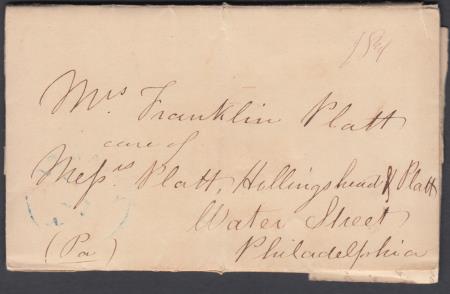 18¾
Mrs Franklin Platt
care of
Messrs Platt, Hollingshead & Platt
Water Street
(Pa) Philadelphia